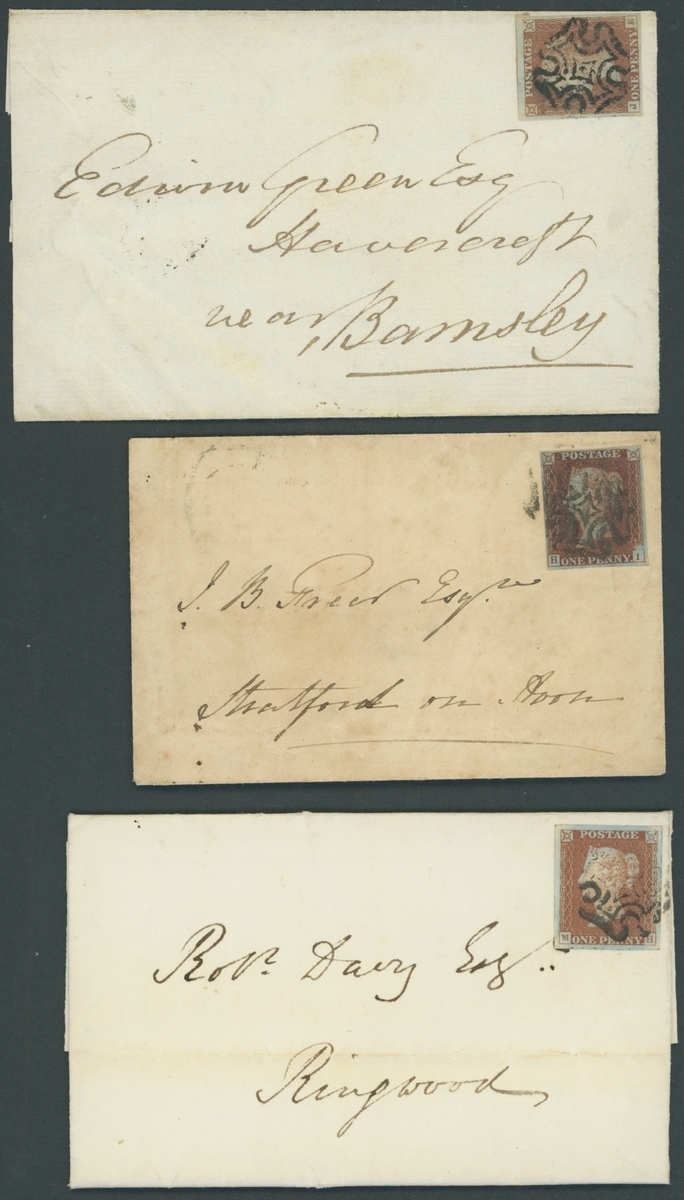 POSTAGE
ONE PENNY
Edwin Green Esq
Havercroft
near Barnsley
POSTAGE
H ONE PENNY I
J. B. Freer Esqre
Stratford on Avon
POSTAGE
M ONE PENNY H
Robt. Davy Esq..
Ringwood